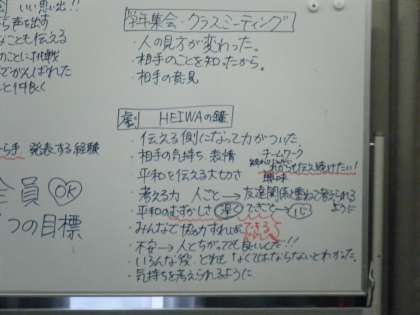 いい思い出!!
ら声を出す
なことも伝える
のことに挑戦
でがんばれた
と仲良く
から手 発表する経験
全員 OK
つの目標
学年集会・クラスミーティング
・人の見方が変わった。
・相手のことを知ったから。
・相手の意見
劇 HEIWAの鐘
・伝える側になって力がついた。
・相手の気持ち 表情 チームワーク
・平和を伝える大切さ これから伝え続けたい!
興味
・考える力 人ごと→友達関係と重ねて考えられる
ように
・平和のむずかしさ 深く できごと 心
・みんなで協力すれば できる
・不安→人とちがっても良いんだ!!
・いろんな役 どれも なくてはならないとわかった。
・気持ちを考えられるように